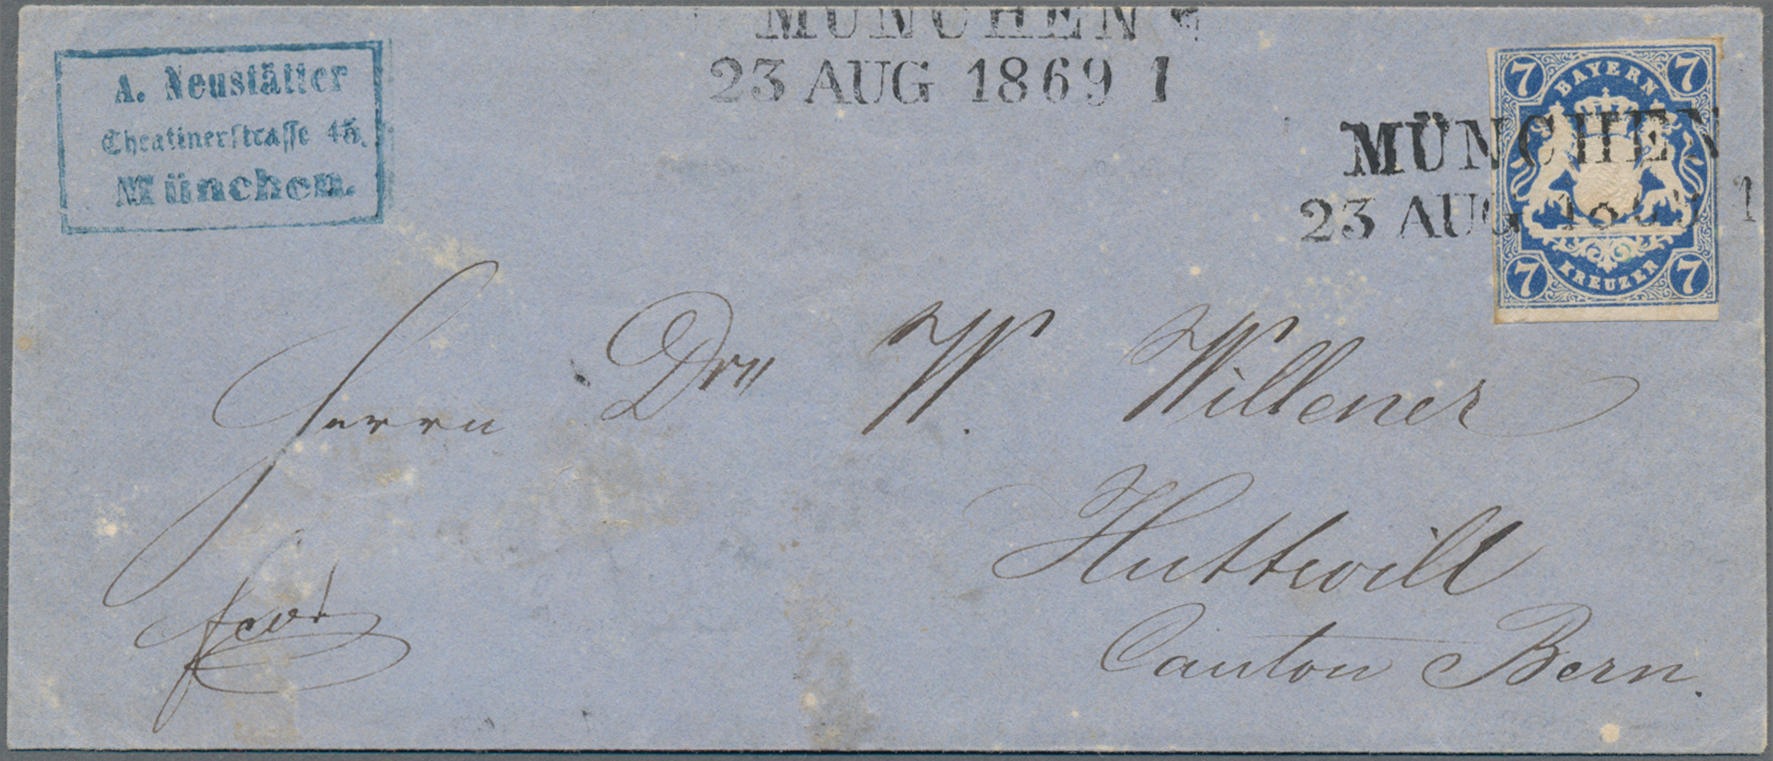 A. Neustätter
Theatinerstrasse 45.
München.
MÜNCHEN
23 AUG 1869 1
7 BAYERN 7
MÜNCHEN
23 AUG 1869 1
7 KREUZER 7
Herrn Dr W. Willener
Huttwill
Canton Bern.